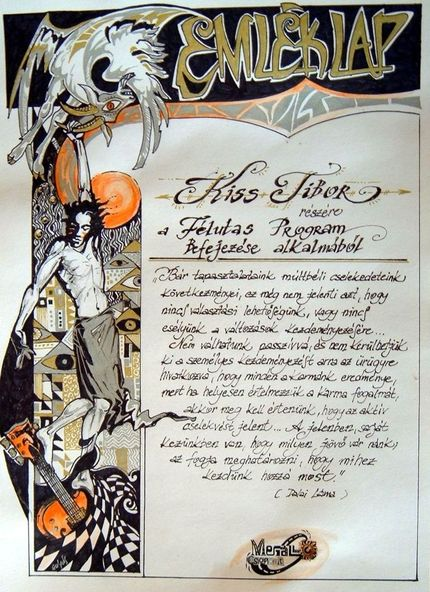 EMLÉKLAP
Kiss Tibor
részére
a Félutas Program
befejezése alkalmából
„Bár tapasztalataink múltbéli cselekedeteink
következményei, ez még nem jelenti azt, hogy
nincs választási lehetőségünk, vagy nincs
esélyünk a változások kezdeményezésére...
Nem válhatunk passzívvá, és nem kerülhetjük
ki a személyes kezdeményezést arra az ürügyre
hivatkozva, hogy minden a karmánk eredménye,
mert ha helyesen értelmezzük a karma fogalmát,
akkor meg kell értenünk, hogy az aktív
cselekvést jelent... A jelenben, saját
kezünkben van, hogy milyen jövő vár ránk;
az fogja meghatározni, hogy mihez
kezdünk hozzá most."
(Dalai Láma)